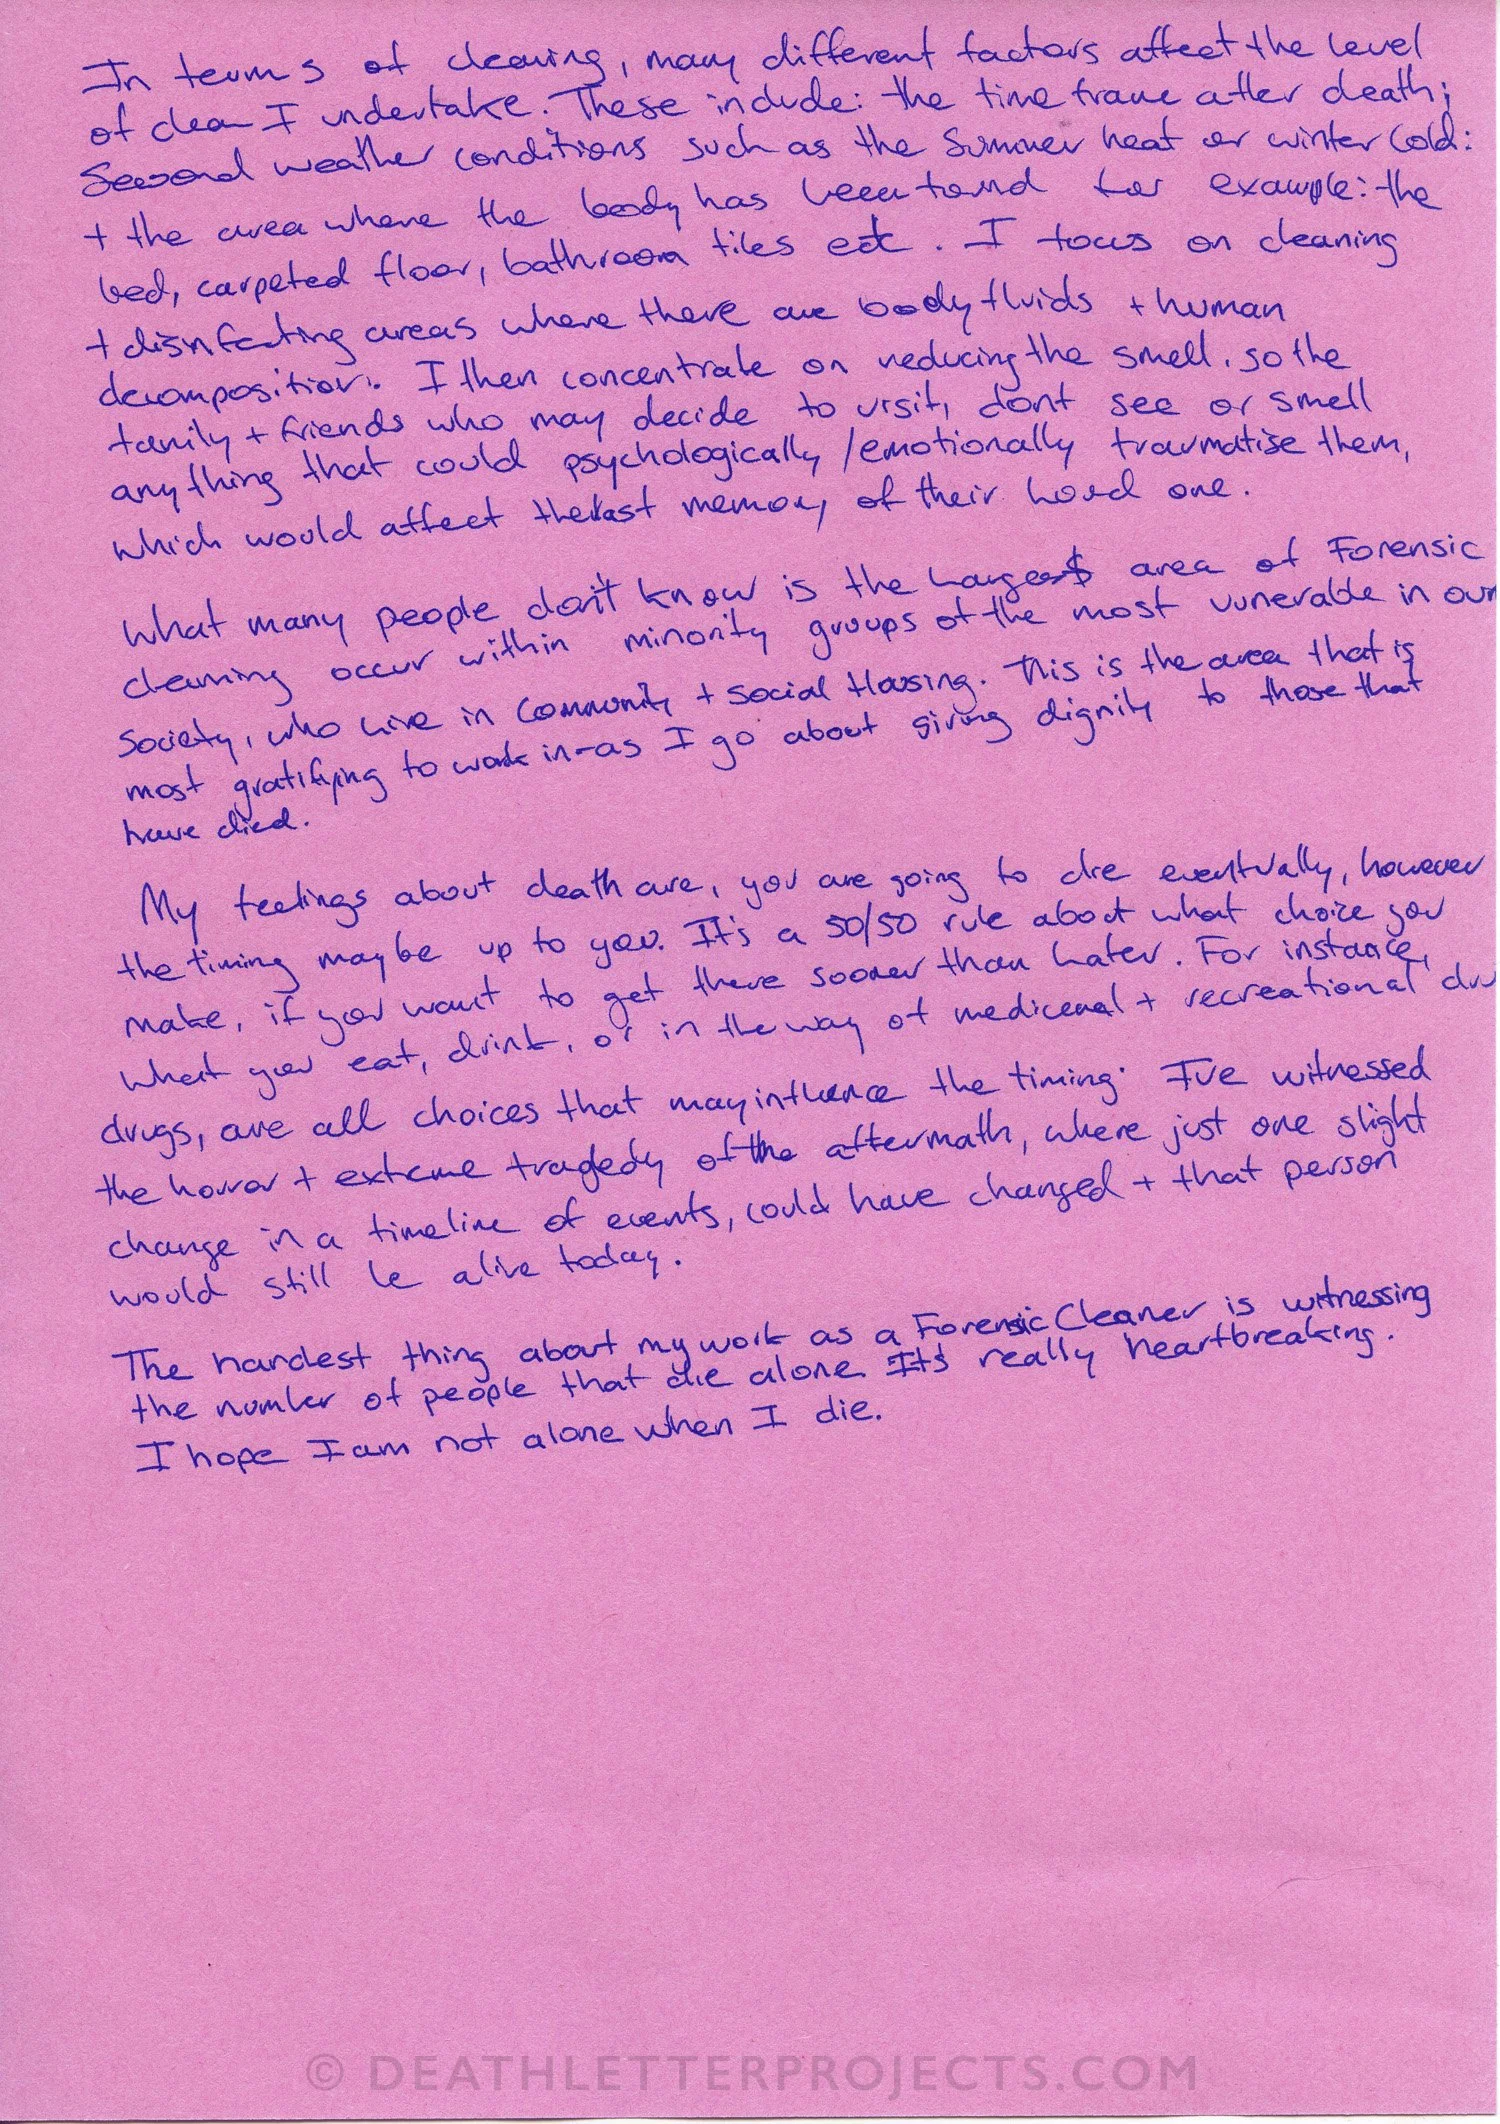 In terms of cleaning, many different factors affect the level
of clean I undertake. These include: the time frame after death;
Seasonal weather conditions such as the Summer heat or winter cold:
+ the area where the body has been found for example: the
bed, carpeted floor, bathroom tiles ect. I focus on cleaning
+ disinfecting areas where there are body fluids + human
decomposition. I then concentrate on reducing the smell, so the
family + friends who may decide to visit, dont see or smell
anything that could psychologically / emotionally traumatise them,
which would affect the last memory of their loved one.
What many people don't know is the largest area of Forensic
cleaning occur within minority groups of the most vunerable in our
Society, who live in Community + Social Housing. This is the area that is
most gratifying to work in - as I go about giving dignity to those that
have died.
My feelings about death are, you are going to die eventually, however
the timing maybe up to you. It's a 50/50 rule about what choice you
make, if you want to get there sooner than later. For instance,
What you eat, drink, or in the way of medicenal + recreational dru
drugs, are all choices that may influence the timing. I've witnessed
the horror + extreme tragedy of the aftermath, where just one slight
change in a timeline of events, could have changed + that person
would still be alive today.
The hardest thing about my work as a Forensic Cleaner is witnessing
the number of people that die alone. It's really heartbreaking.
I hope I am not alone when I die.
© DEATHLETTERPROJECTS.COM